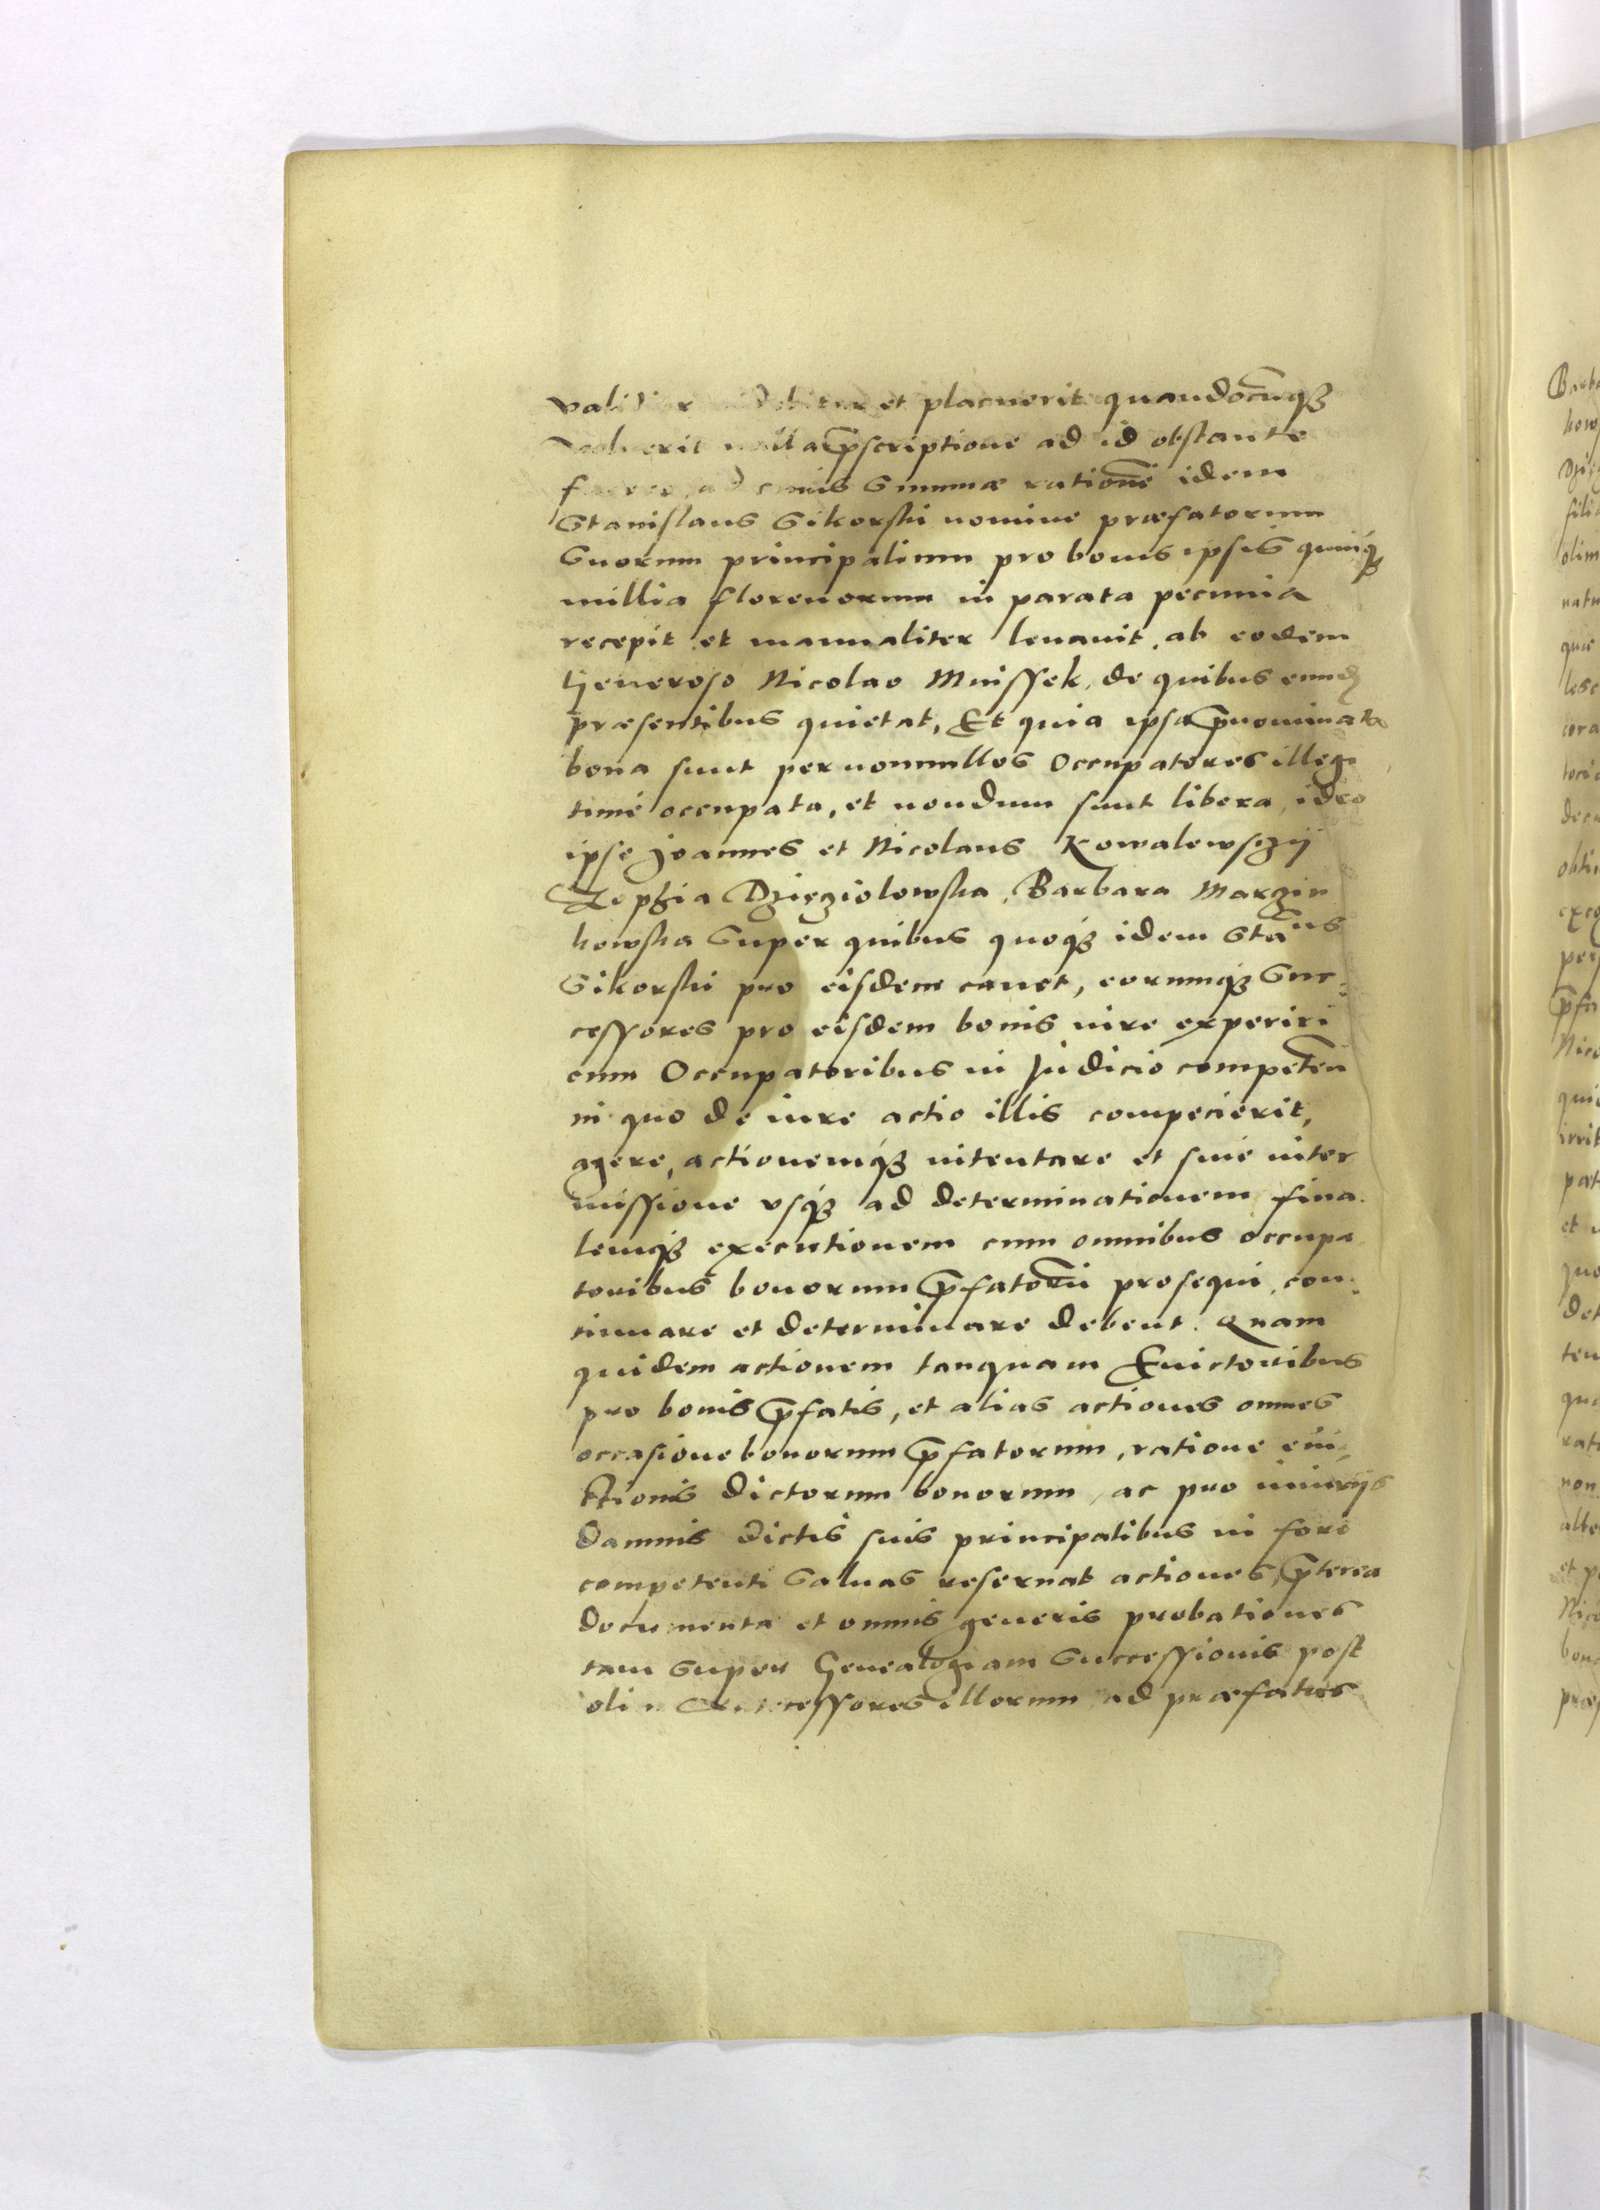 et placuerit quandocunq3
nulla pscriptione ad id obstante
ad cuius Summæ rationē idem
Stanislaus Sikorski nomine præfatorum
Suorum principalium pro bonis ipsis quinq3
millia florenorum in parata pecunia
recepit et manualiter leuauit, ab eodem
Generoso Nicolao Mnissek, de quibus eund
præsentibus quietat, Et quia ipsa pnominata
bona sunt per nonnullos Occupatores illegi
timé occupata, et nondum sunt libera, ideo
ipse Joannes et Nicolaus Kowalewsczÿ
Zophia Dzięgiolowska, Barbara Margin
kowska Super quibus quoq3 idem Stāus
Sikorski pro eisdem cauet, eorumq3 Suc=
cessores pro eisdem bonis iure experiri
cum Occupatoribus in Judicio competen
in quo de iure actio illis compecierit,
agere, actionemq3 intentare et sine inter
missione vsq3 ad determinationem fina.
lemq3 executionem cum omnibus occupa
toribus bonorum pfatorū prosequi, con=
tinuare et determinare debent. Quam
quidem actionem tanquam Euictoribus
pro bonis pfatis, et alias actiones omnes
occasione bonorum pfatorum, ratione eui=
ctionis dictorum bonorum, ac pro iniurÿs
damnis dictis suis principalibus in foro
competenti Saluas reseruat actiones, pterea
documenta et omnis generis probationes
tam Super Genealogiam Successionis post
olim Antecessores illorum ad præfatas